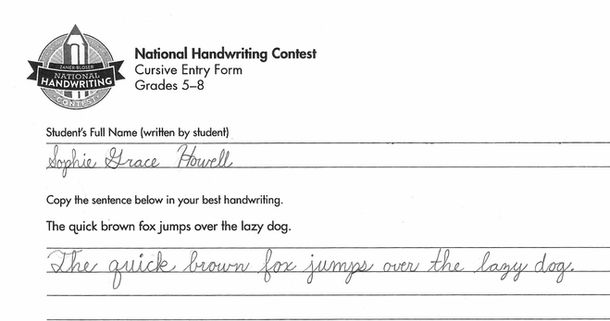 ZANER-BLOSER
NATIONAL
HANDWRITING
CONTEST
National Handwriting Contest
Cursive Entry Form
Grades 5–8
Student's Full Name (written by student)
Sophie Grace Howell
Copy the sentence below in your best handwriting.
The quick brown fox jumps over the lazy dog.
The quick brown fox jumps over the lazy dog.